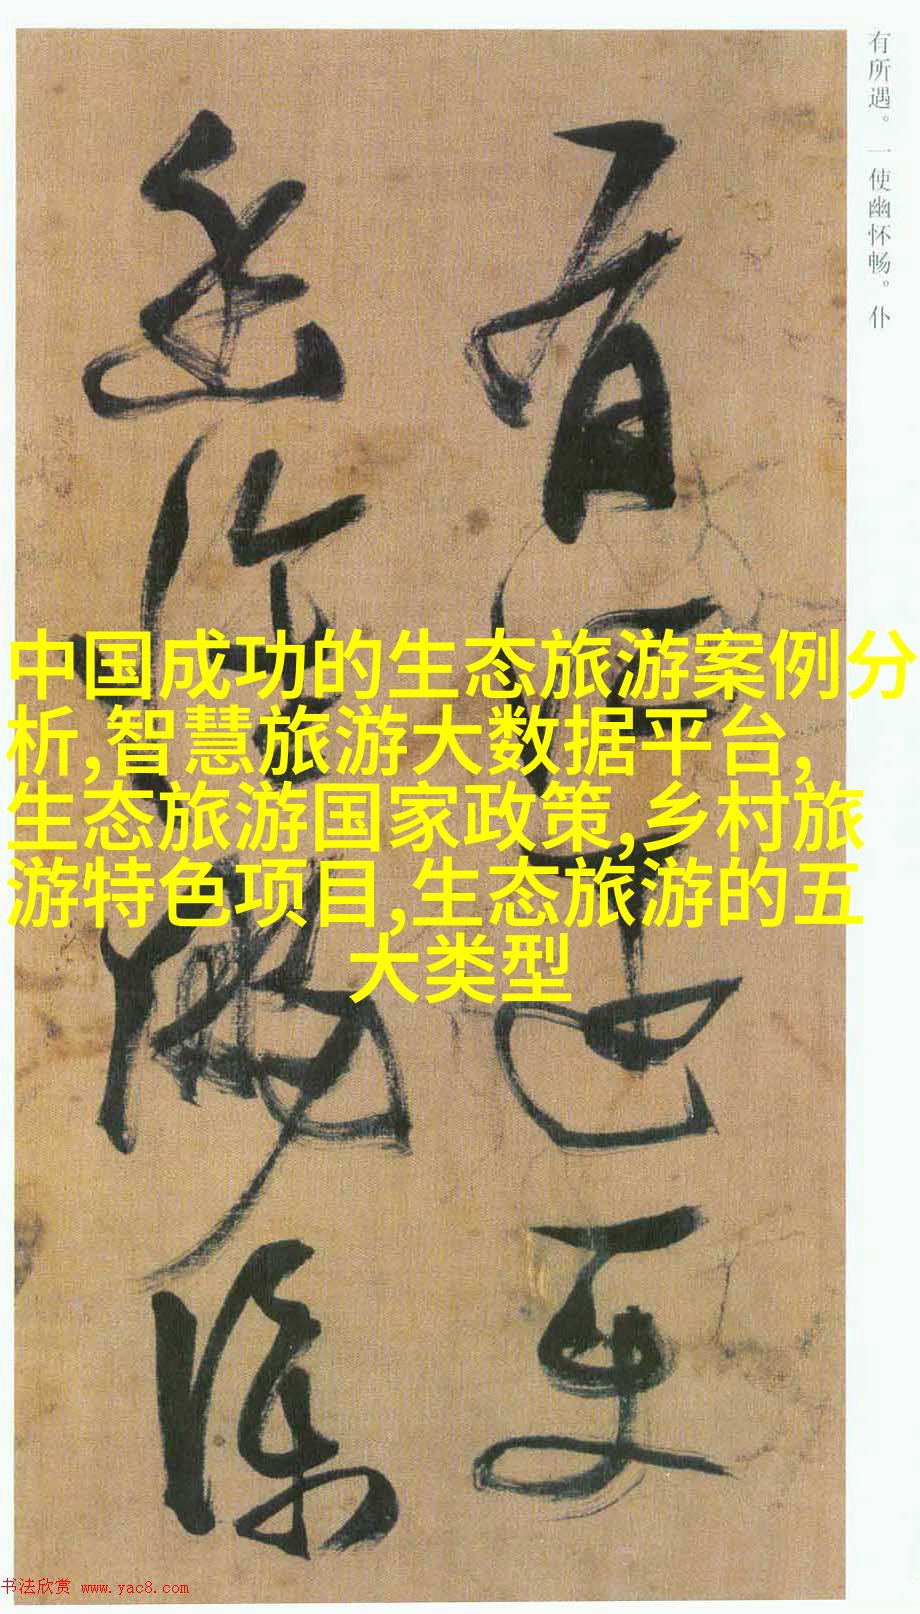 有所遇。一使幽怀畅。仆
有所遇一使
幽怀畅仆
中国成功的生态旅游案例分
析,智慧旅游大数据平台,
生态旅游国家政策,乡村旅
游特色项目,生态旅游的五
大类型
书法欣赏 www.yac8.com